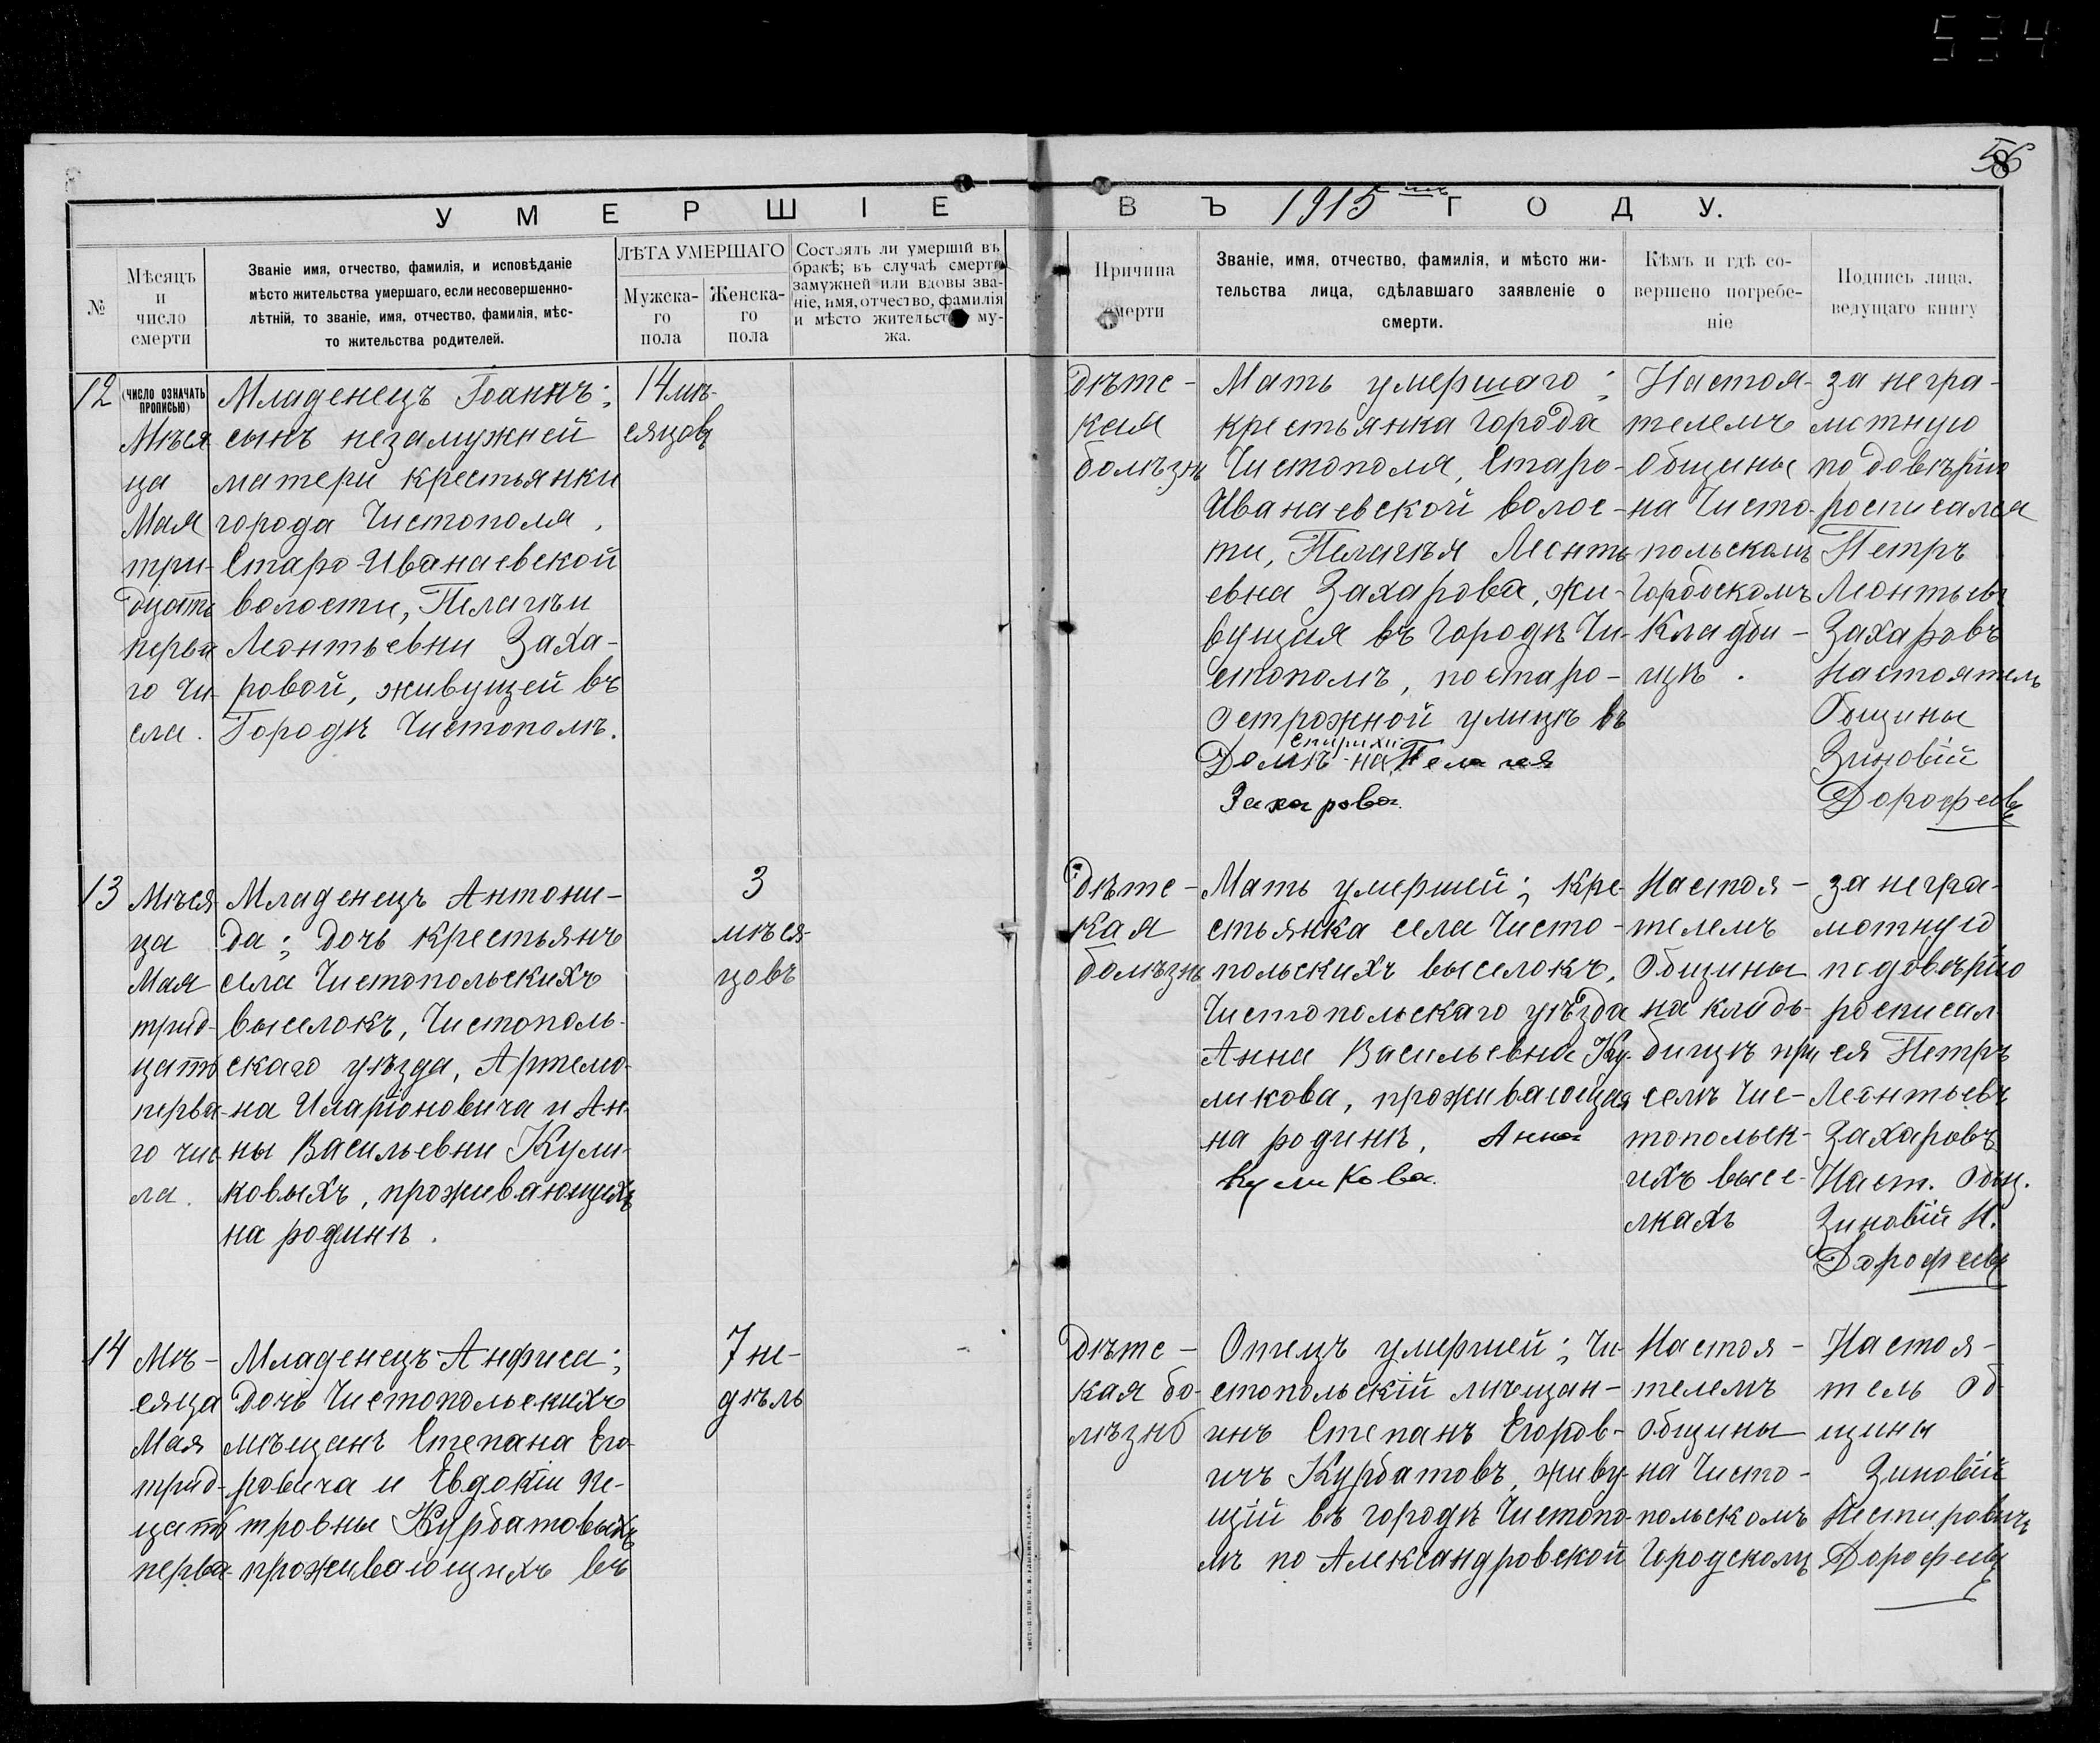 534
56
УМЕРШІЕ
ВЪ 1915 мъ ГОДУ.
№
Мѣсяцъ
и
число
смерти
Званіе имя, отчество, фамилія, и исповѣданіе
мѣсто жительства умершаго, если несовершенно-
лѣтній, то званіе, имя, отчество, фамилія, мѣс-
то жительства родителей.
ЛѢТА УМЕРШАГО
Мужска-
го
пола
Женска-
го
пола
Состоялъ ли умершій въ
бракѣ; въ случаѣ смерти
замужней или вдовы зва-
ніе, имя, отчество, фамилія
и мѣсто жительства му-
жа.
Причина
смерти
Званіе, имя, отчество, фамилія, и мѣсто жи-
тельства лица, сдѣлавшаго заявленіе о
смерти.
Кѣмъ и гдѣ со-
вершено погребе-
ніе
Подпись лица,
ведущаго книгу
12
(ЧИСЛО ОЗНАЧАТЬ
ПРОПИСЬЮ)
Мѣся
ца
Мая
три-
дцать
перва
го чи-
сла.
Младенецъ Іоаннъ;
сынъ незамужней
матери крестьянки
города Чистополя,
Старо-Иванаевской
волости, Пелагѣи
Леонтьевны Заха-
ровой, живущей въ
Городѣ Чистополѣ.
14 мѣ-
сяцовъ
Дѣтс-
кая
болѣзнь
Мать умершаго;
крестьянка города
Чистополя, Старо-
Иванаевской волос-
ти, Пелагѣя Леонть
евна Захарова, жи-
вущая въ Городѣ Чи-
стополѣ, по старо-
острожной улицѣ въ
Домѣ на Пелагея
Захарова.
Настоя-
телемъ
Общины
на Чисто-
польскомъ
Городскомъ
Кладби-
щѣ.
за негра-
мотную
по довѣрію
росписался
Петръ
Леонтьевъ
Захаровъ
Настоятель
Общины
Зиновій
Дорофеевъ
13
Мѣся
ца
Мая
трид-
цать
перва-
го чис-
ла.
Младенецъ Антони-
да; дочь крестьянъ
села Чистопольскихъ
выселокъ, Чистополь-
скаго уѣзда, Артемо-
на Иларіоновича и Ан-
ны Васильевны Кули-
ковыхъ, проживающихъ
на родинѣ.
3
мѣся-
цовъ
Дѣтс-
кая
болѣзнь
Мать умершей; кре-
стьянка села Чисто-
польскихъ выселокъ,
Чистопольскаго уѣзда
Анна Васильевна Ку-
ликова, проживающая
на родинѣ, Анна
Куликова.
Настоя-
телемъ
Общины
на кладь-
бищѣ при
селѣ Чис-
топольск-
ихъ высе-
лкахъ
за негра-
мотную
по довѣрію
росписал-
ся Петръ
Леонтьевъ
Захаровъ
Наст. Общ.
Зиновій Н.
Дорофеевъ
14
Мѣ-
сяца
Мая
трид-
цать
перва-
Младенецъ Анфиса;
Дочь Чистопольскихъ
мѣщанъ Степана Его-
ровича и Евдокіи Пе-
тровны Курбатовыхъ
проживающихъ въ
7 не-
дѣль
Дѣтс-
кая бо-
лѣзнь
Отецъ умершей; Чи-
стопольскій мѣщан-
инъ Степанъ Егоров-
ичъ Курбатовъ, живу-
щій въ городѣ Чистопо-
лѣ по Александровской
Настоя-
телемъ
Общины
на Чисто-
польскомъ
Городскомъ
Настоя-
тель Об-
щины
Зиновій
Нестировичъ
Дорофеевъ